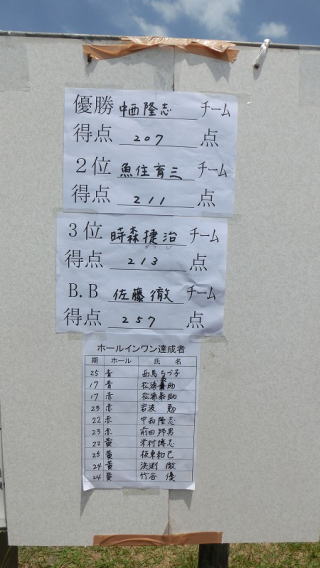 優勝 中西隆志 チーム
得点 207 点
2位 魚住育三 チーム
得点 211 点
3位 時森捷治 チーム
得点 213 点
B.B 佐藤徹 チーム
得点 257 点
ホールインワン達成者
期 ホール 氏名
25 青
17 青 松浦
17 赤 松浦
23 赤 岩波
22 赤 中西隆志
23 赤 前田
22 黄 隆志
25 黄 坂東和己
24 黄 渕 徹
24 黄 竹谷 優